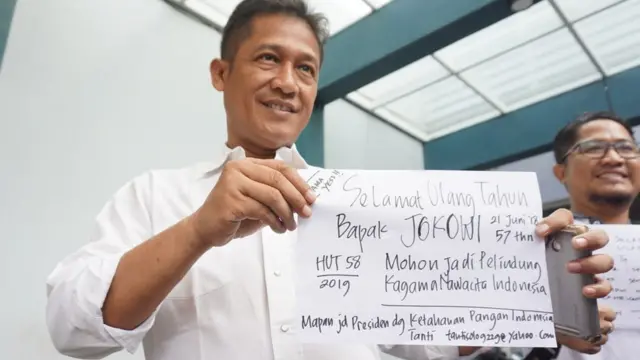 Selamat Ulang Tahun
Bapak JOKOWI 21 Juni
57 thn
HUT 58
2019
Mohon jadi Pelindung
Kagama Nawacita Indonesia
Mapan jd Presiden dg Ketahanan Pangan Indonesia
Tanti